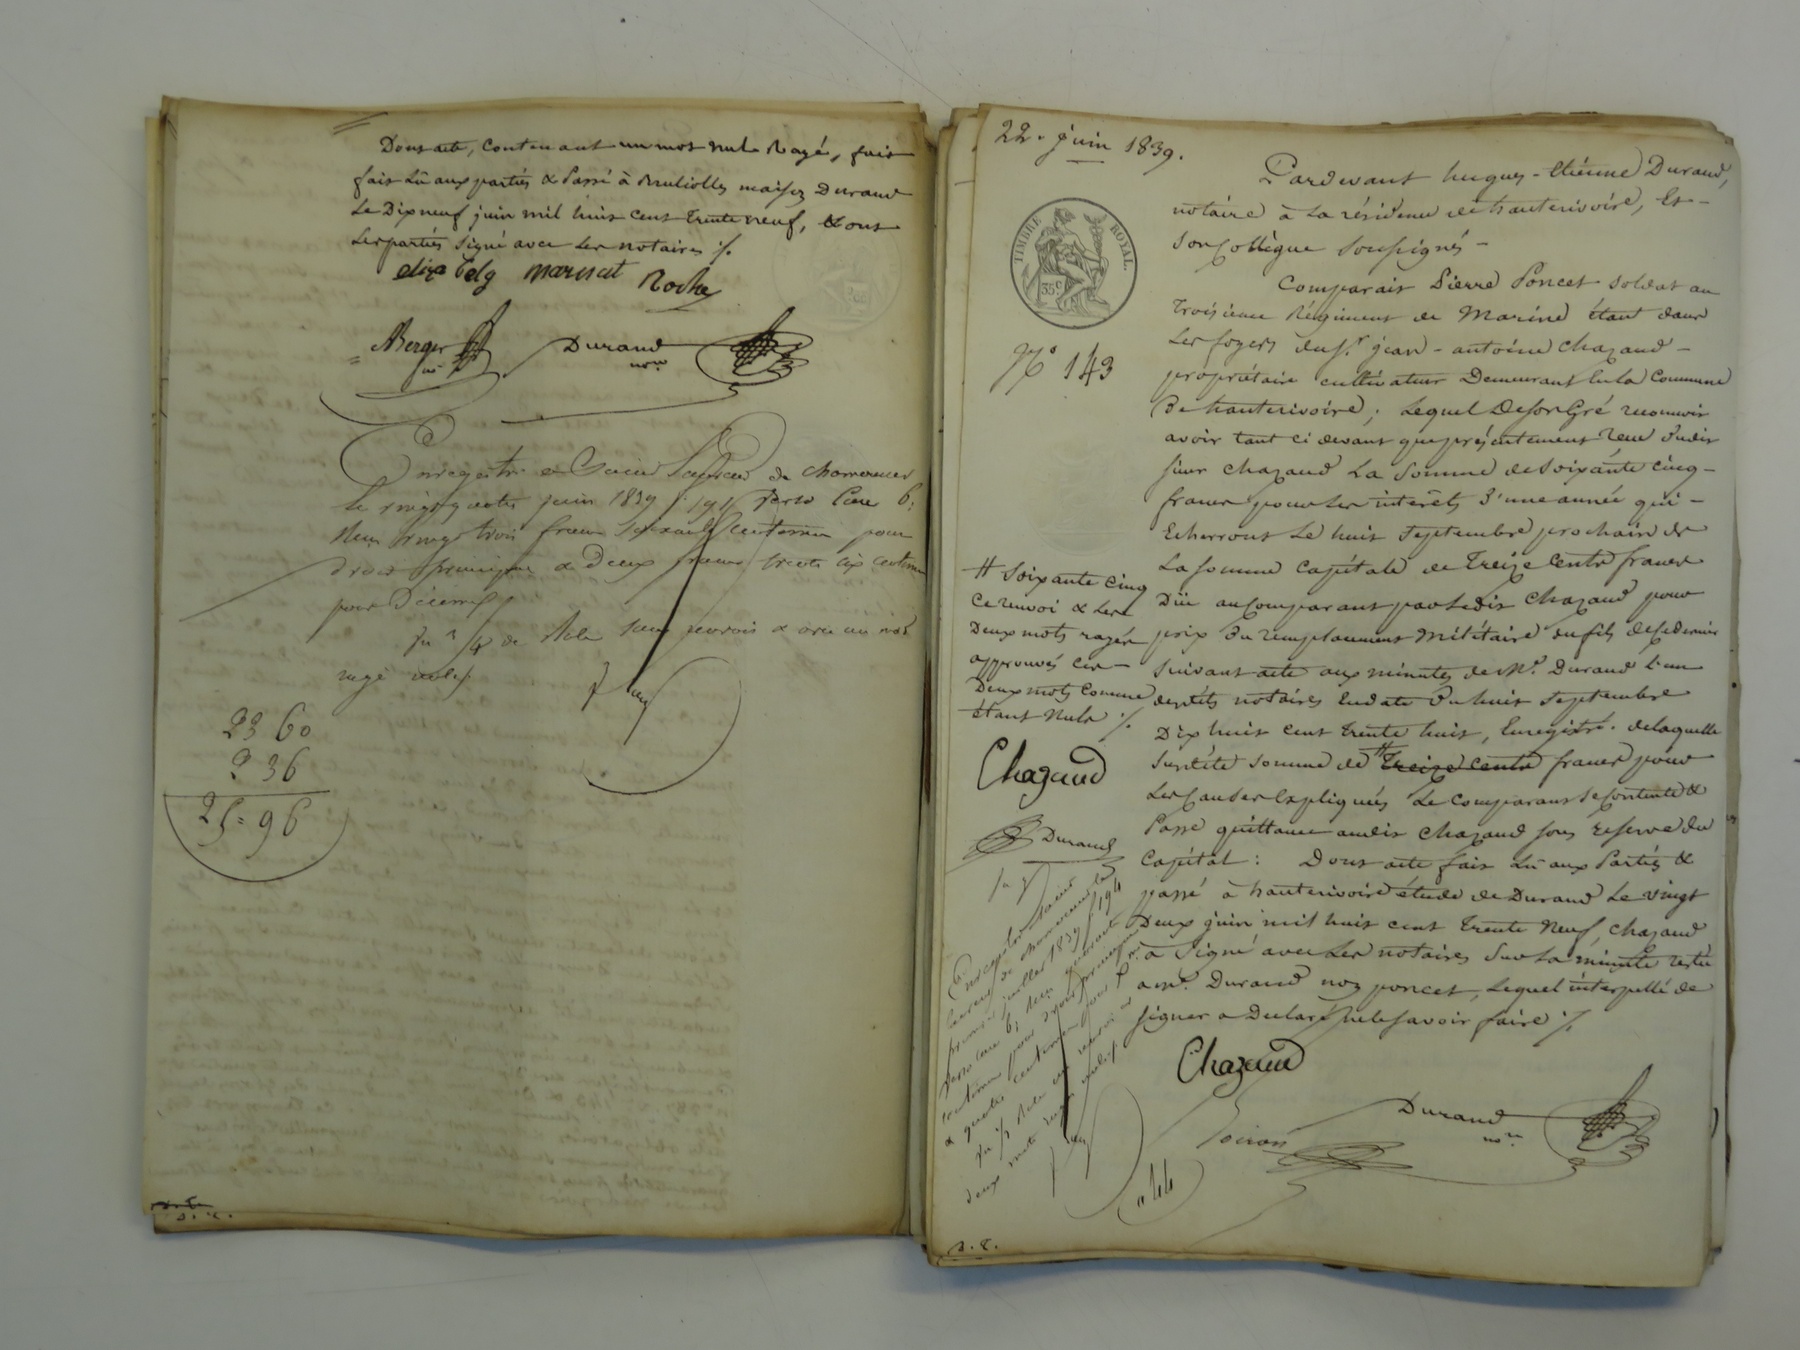 Dont acte, contenant un mot nul Rayé, fait
fait Lû aux partiés & Passé à Brulioles maison Durand
Le Dix neuf juin mil huit cent trente neuf, & ont
Les partiés Signé avec Les notaires ·/.
marnat Roche
Berger Durand
nre nre
Enregistré à Saint Laurent de chamousset
le vingt quatre juin 1839 f. 191 verso Case 6:
Reçu vingt trois francs soixante centimes pour
droit principal & Deux francs trente six centimes
pour Décime
rayé nul
23 60
2 36
25 = 96
22. juin 1839.
TIMBRE ROYAL.
35 c
No 143
Pardevant hugues-étiénne Durand,
notaire à la résidence de hauterivoire, Et-
Son Collègue Soussignés-
Comparait Pierre Poncet soldat au
troisième Régiment de Marine étant dans
Les foyers du Sr. jean-antoine Chazaud-
propriétaire cultivateur Demeurant En la Commune
De hauterivoire; Lequel De son Gré reconnoit
avoir tant ci devant que présentement reçu dudit
sieur Chazaud La Somme de Soixante cinq-
francs pour Les interêts d'une année qui-
Echerront Le huit Septembre prochain de
La somme Capitale de Treize Cents francs
Dûe au Comparant par Ledit Chazaud pour
prix du remplacement Militaire du fils de ce dernier
Suivant acte aux minutes de Me. Durand L'un
desdits notaires En date du huit Septembre
Dix huit cent trente huit, Enregistré. de laquelle
Susdite Somme de # Treize Cents francs pour
Les Causes Expliquées Le Comparant Se Contente &
Passe quittance audit Chazaud Sous reserve du
Capital: Dont acte fait Lû aux Partiés &
passé à hauterivoire étude de Durand Le vingt
Deux juin mil huit cent trente Neuf Chazaud
à Signé avec Les notaires Sur La minute restée
a Me. Durand non poncet, Lequel interpellé de
Signer a Declaré ne le Savoir faire ·/.
# Soixante cinq
Ce renvoi & Les
Deux mots rayés
approuvés Ces-
Deux mots Comme
étant Nuls ·/.
Chazaud
Durand
Enregistré à Saint
Laurent de chamousset le
premier juillet 1839 f 194
verso case 6, reçu quarante
centimes pour droit principal
& quatre centimes pour
deux mots rayés nuls
" 44
Chazaud
Durand
nre